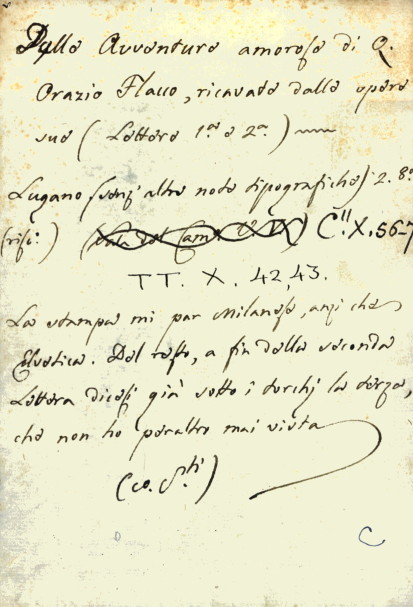 Delle Avventure amorose di Q.
Orazio Flacco, ricavate dalle opere
sue (Lettere 1.ª e 2.ª)
Lugano (senz'altre note tipografiche) 2. 8.º
C." X. 56-7
TT. X. 42, 43.
La stampa mi par Milanese, anzi che
Elvetica. Del resto, a fin della seconda
Lettera dicesi già sotto i torchj la terza,
che non ho peraltro mai vista
C